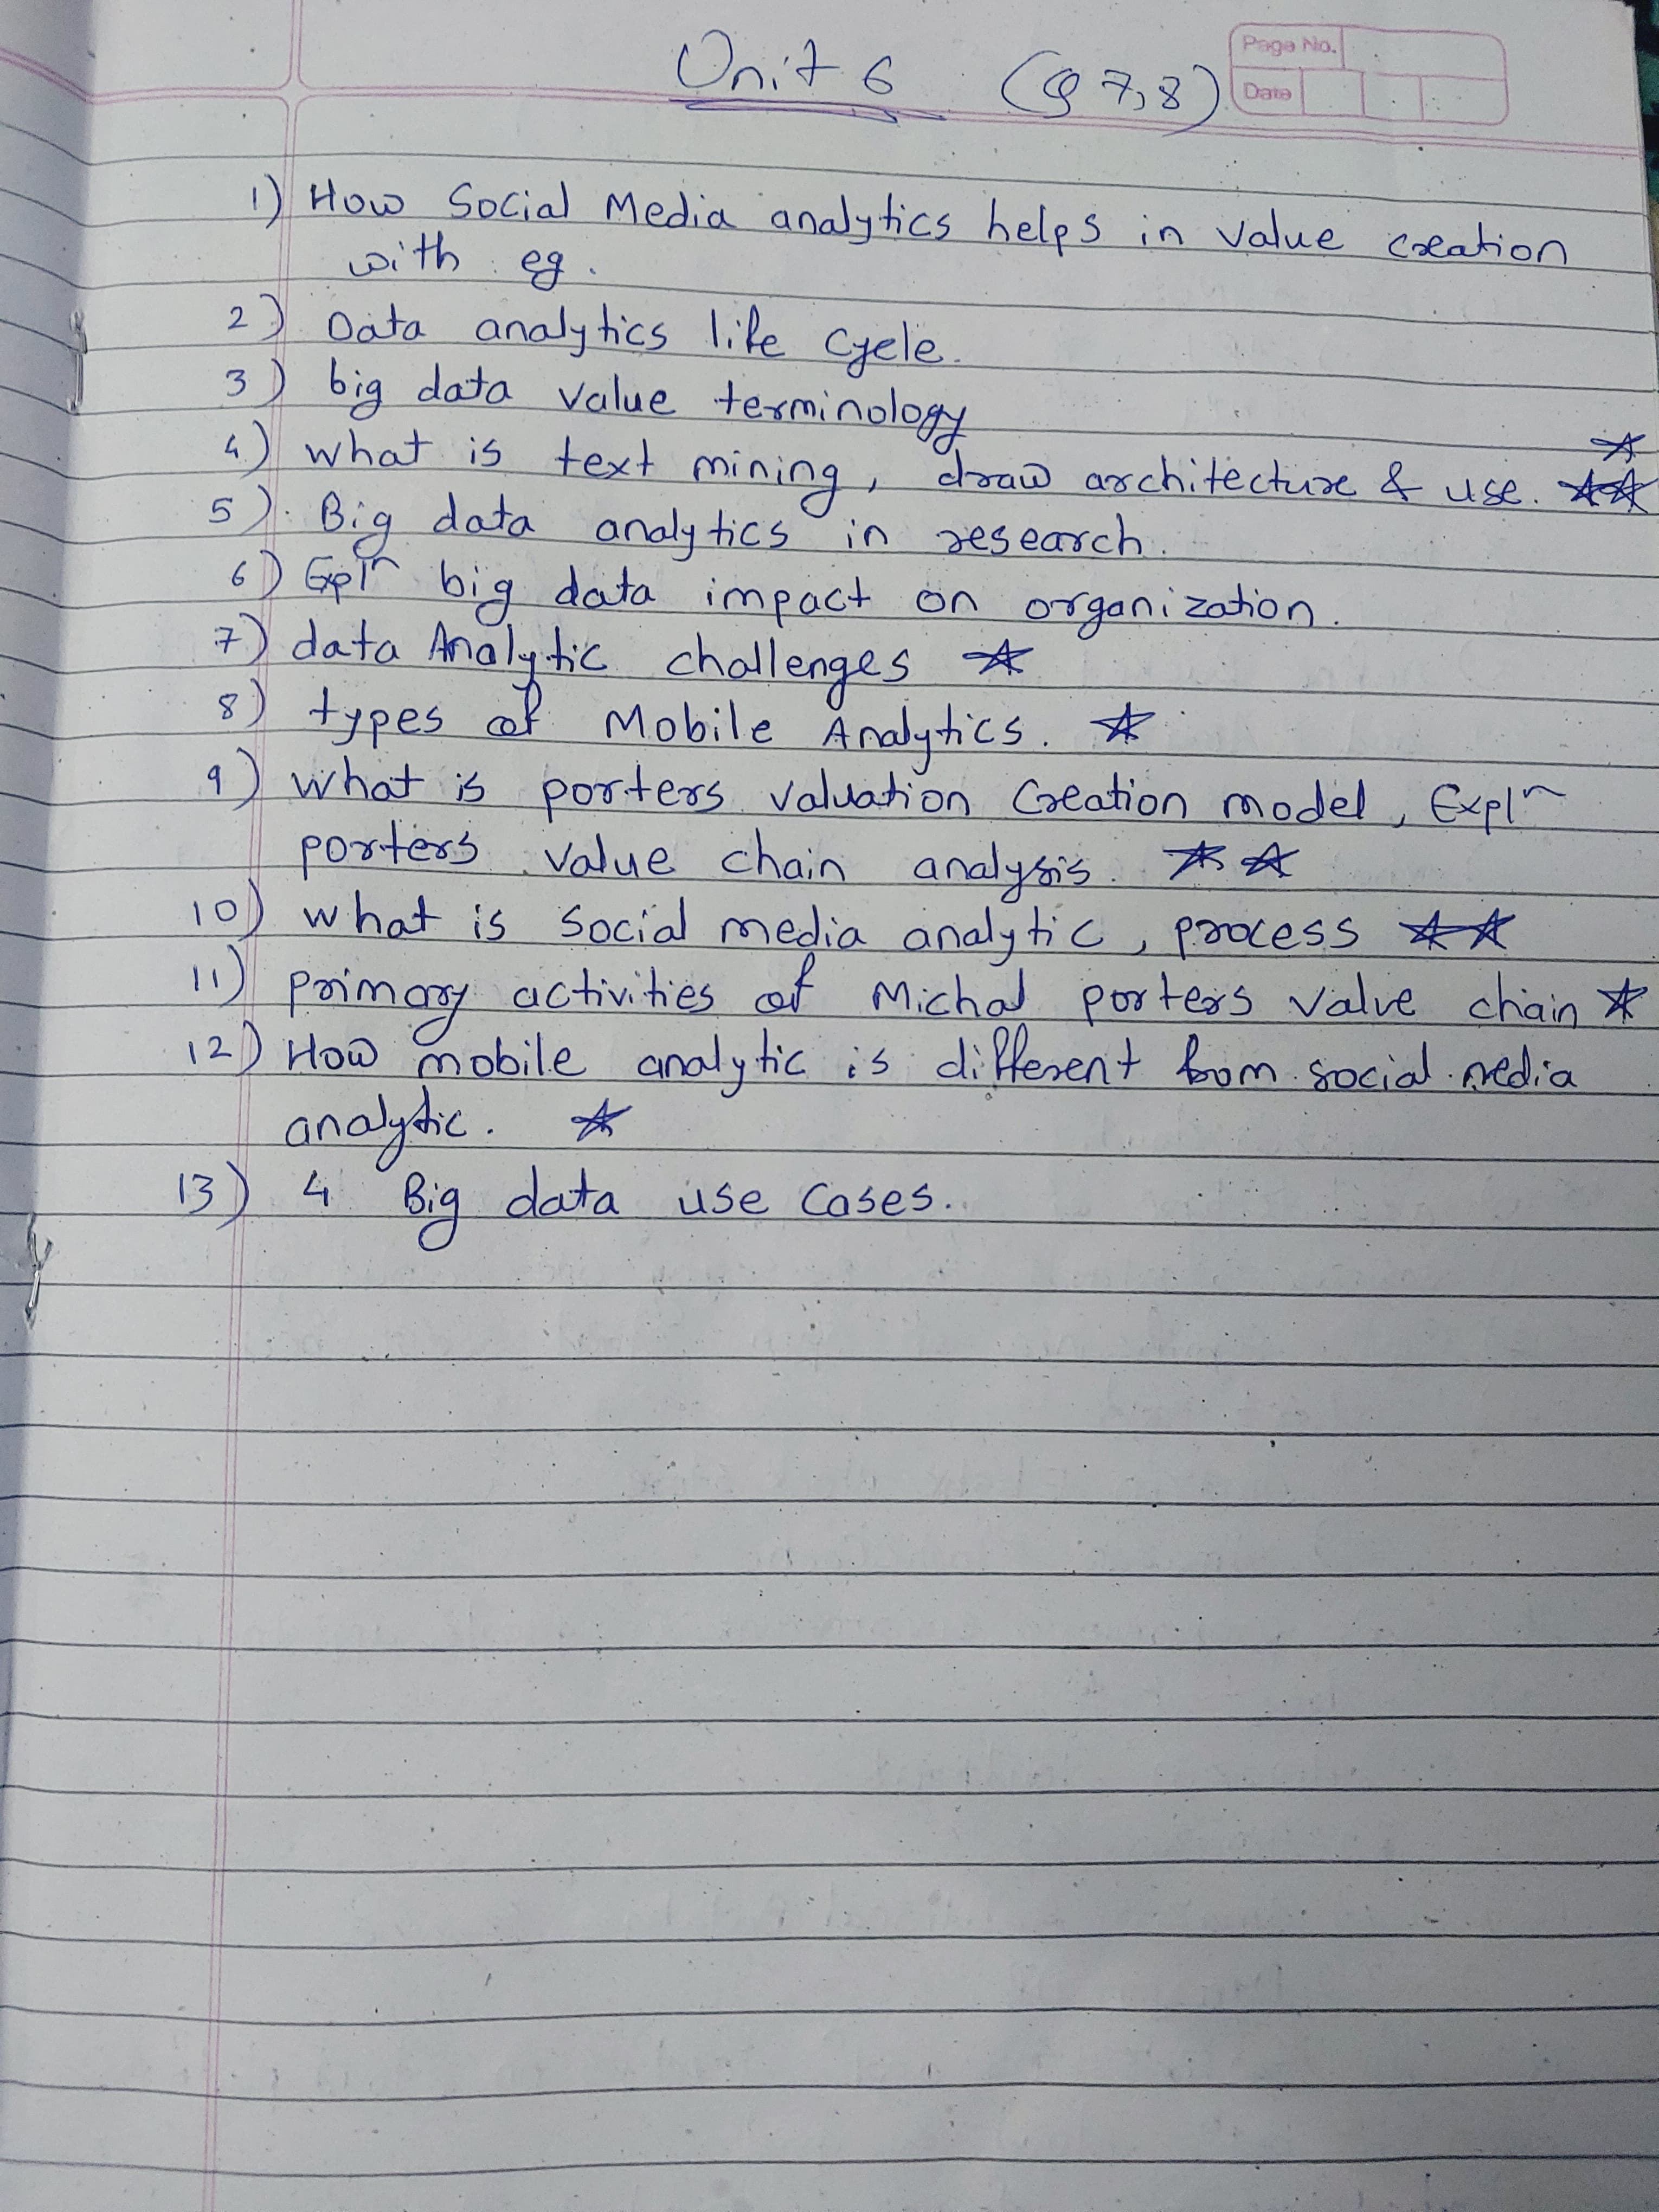 Unit 6 (Q 7,8)
Page No.
Date
1) How Social Media analytics helps in value creation
with eg.
2) Data analytics life cycle.
3) big data value terminology
4) what is text mining, draw architecture & use. ☆☆☆
5). Big data analytics in research.
6) Expln big data impact on organization.
7) data Analytic challenges ☆
8) types of Mobile Analytics. ☆
9) what is porters valuation Creation model, Expln
porters value chain analysis. ☆ ☆
10) what is social media analytic, process ☆☆
11) primary activities of Michal porters value chain ☆
12) How mobile analytic is different from social media
analytic. ☆
13) 4 Big data use cases.